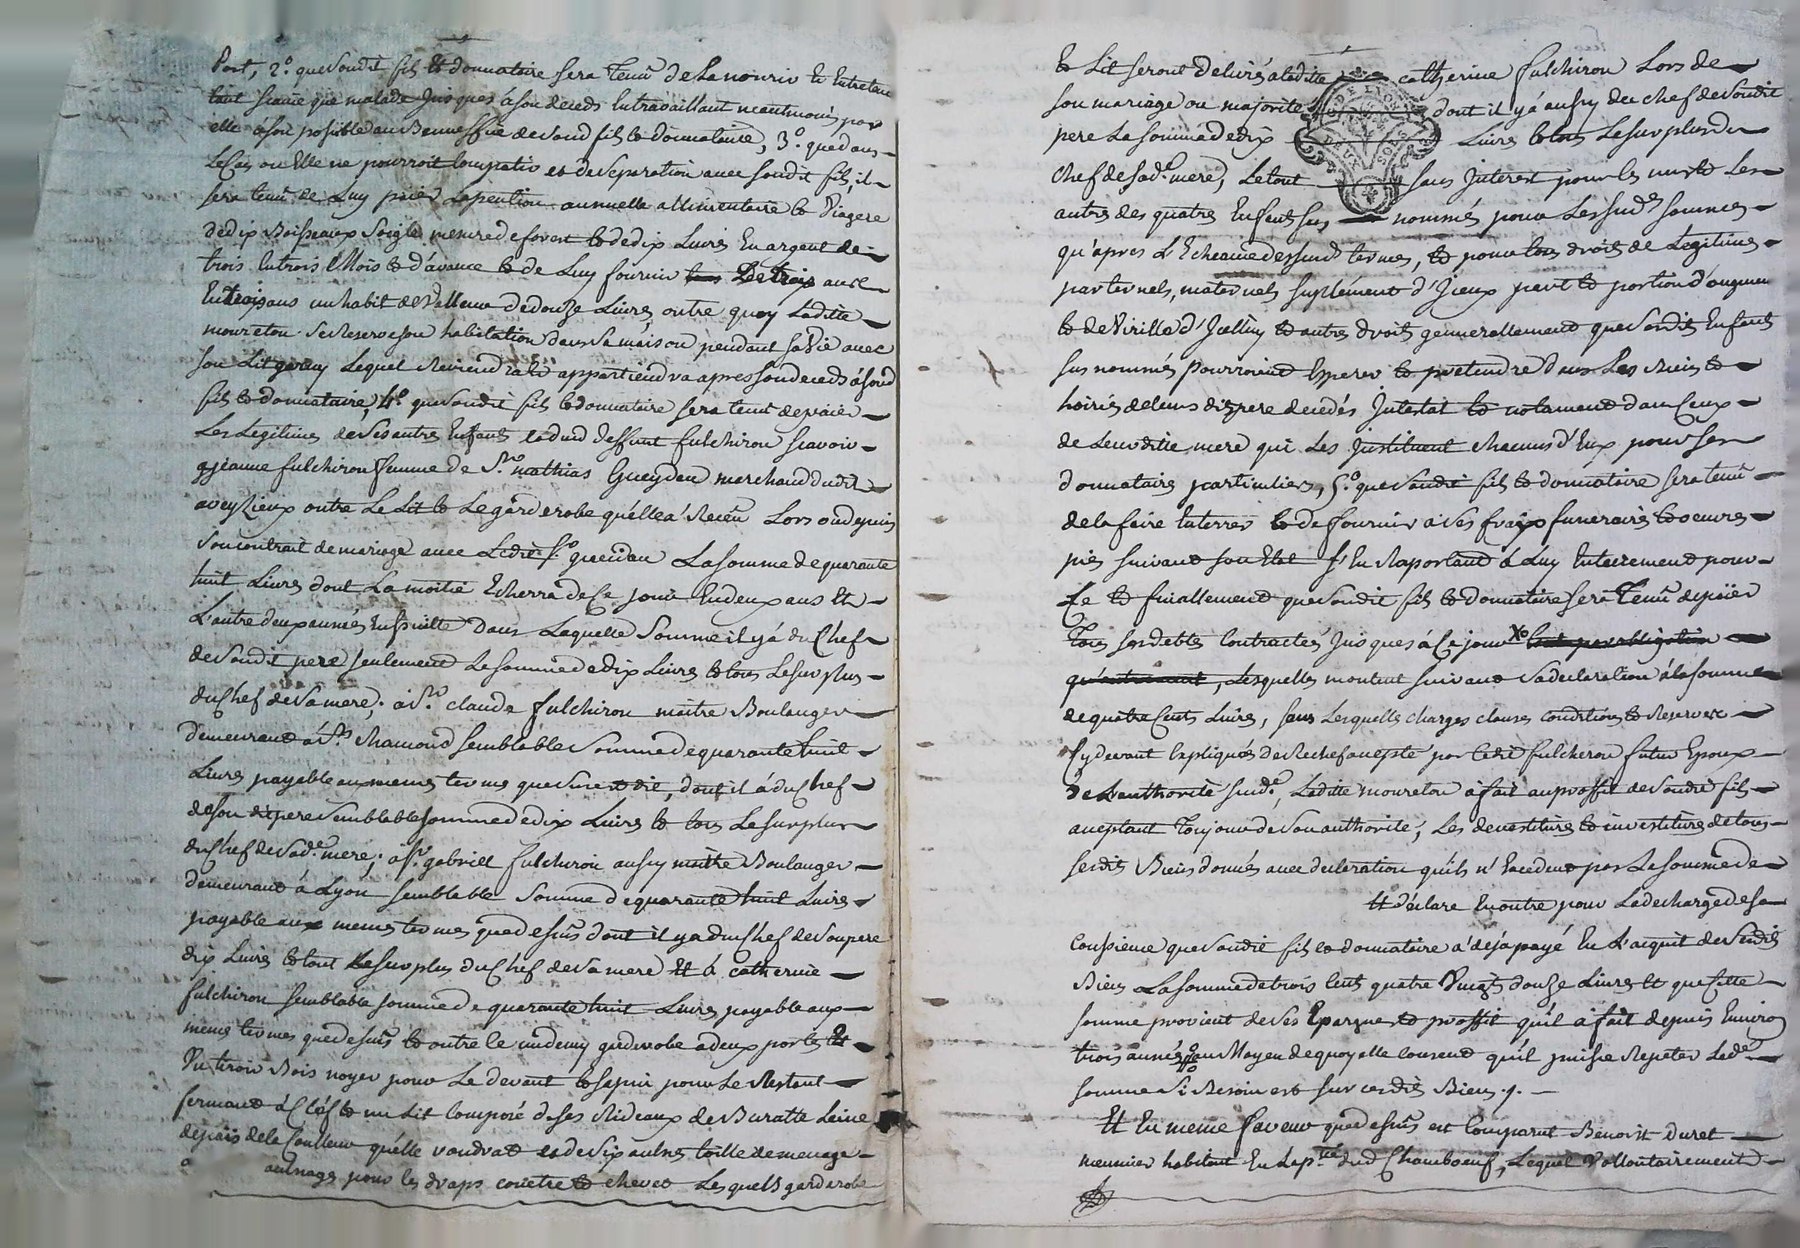 Part, 2.º que Soudit fils Et donnataire sera Tenu de La nourir Et Entretenir
tant Saine que malade Jusques à son deceds En travaillant neantmoins par
elle à son possible au Benneffice de Soud fils Et donnataire, 3.º que dans
Le Cas ou Elle ne pourroit Compatir et de Separation avec Soudit fils, il
sera tenu de Luy paier La pention annuelle allimentaire Et Viagere
de dix Boisseaux Soigle mesure de forest Et de dix Livres En argent de
trois En trois Mois Et d'avance Et de Luy fournir De trois ans
En trois ans un habit de Valleur de douze Livres, outre quoy Laditte
moureton Se Reserve son habitation dans Sa maison pendant Sa Vie avec
son Lit garny Lequel Reviendra Et appartiendra apres son deceds à Soud
fils Et donnataire, 4.º que Soudit fils Et donnataire sera tenu de paier
Les Legitimes de Ses autres Enfants Et dud deffunt fulchiron scavoir
à jeanne fulchiron femme de S.r mathias Gueydan marchand dudit
aveyzieux outre Le Lit Et Le garderobe qu'elle a Receu Lors
Son contrait de mariage avec Ledit S.r gueidan La somme de quarante
huit Livres dont La moitié Echerra de Ce jour En deux ans Et
L'autre deux années Ensuitte dans Laquelle Somme il y á du Chef
de Soudit pere seulement La somme de dix Livres Et tout Le Surplus
du Chef de Sa mere; à S.r claude fulchiron maitre Boulanger
demeurant à S.t Chamond semblable Somme de quarante huit
Livres payable aux memes termes que Sus est dit, dont il á du Chef
de Son dit pere Semblable somme de dix Livres Et tout Le Surplus
du Chef de Sad.e mere; à S.r gabriell fulchiron aussy maitre Boulanger
demeurant à Lyon semblable Somme de quarante huit Livres
payable aux memes termes que dessus dont il y a du Chef de Son pere
dix Livres Et tout Le Surplus du Chef de Sa mere Et à catherine
fulchiron semblable somme de quarante huit Livres payable aux
meme termes que dessus Et outre Ce un demy garderobe à deux portes Et
Un tiroir Bois noyer pour Le devant Et Sapin pour Le Restant
fermant à Clef Et un Lit Composé de Ses Rideaux de Buratte Laine
depaïs de la Coulleur qu'elle voudra Et de Six aulnes toille de menage
aulnage pour les draps couetre Et chevet Lesquels garderobe
Et Lit seront delivrés à laditte catherine fulchiron Lors de
son mariage ou majorité dont il y á aussy du chef de Soudit
pere La somme de dix Livres Et tout Le Surplus du
Chef de Sad.e mere, Le tout sans Interest pour les uns Et Les
autres des quatres Enfants Sus nommés pour Lesd.es sommes
qu'apres L'Echeance desSusd termes, Et pour tous droits de Legitimes
paternels, maternels suplement d'Jceux part Et portion d'augment
Et de Virille d'Jcelluy Et autres droits generallement que Sesdits Enfants
sus nommés pourroient Esperer Et pretendre dans Les Biens Et
hoiries de leurs dit pere decedés Jntestat Et notament dans Ceux
de Leurditte mere qui Les Jnstituent Chacuns d'Eux pour Ses
donnataires particuliers, 5.º que Soudit fils Et donnataire sera tenu
de la faire Enterrer Et de fournir à Ses fraix funeraires Et oeuvres
pies suivant son Etat S'En Raportant à Luy Entierement pour
Ce Et finallement que Soudit fils Et donnataire sera Tenu de païer
Tous Ses debtes Contractés Jusques à Ce jour Xº soit par obligation
qu'autrement, Lesquelles montent suivant Sa declaration à la somme
de quatre Cents Livres, sous Lesquelles charges clauses Conditions Et Reserves
Cy devant Expliquées de Rechef accepté par Ledit fulchiron futur Epoux
de L'authorité Susd.e, Laditte moureton à fait au proffit de Soudit fils
aceptant Toujours de Son authorité, Les devestitures Et investitures de tous
sesdits Biens donnés avec declaration qu'ils n'Excedent pas La somme de
Et déclare En outre pour La decharge de Sa
Consience que Soudit fils Et donnataire à déja payé En L'acquit de Sesdits
Biens La somme de trois Cents quatre Vingts douze Livres Et que Cette
somme provient de Ses Epargne Et proffit qu'il à fait depuis Environ
trois années au Moyen de quoy elle Consent qu'il puisse Repeter Lad.e
somme Si Besoin est sur cesdits Biens.
Et En meme faveur que dessus est Comparut Benoit Duret
meunier habitant En La p.sse dud Chambœuf, Lequel Vollontairement
DE LYON
DEUX SOLS